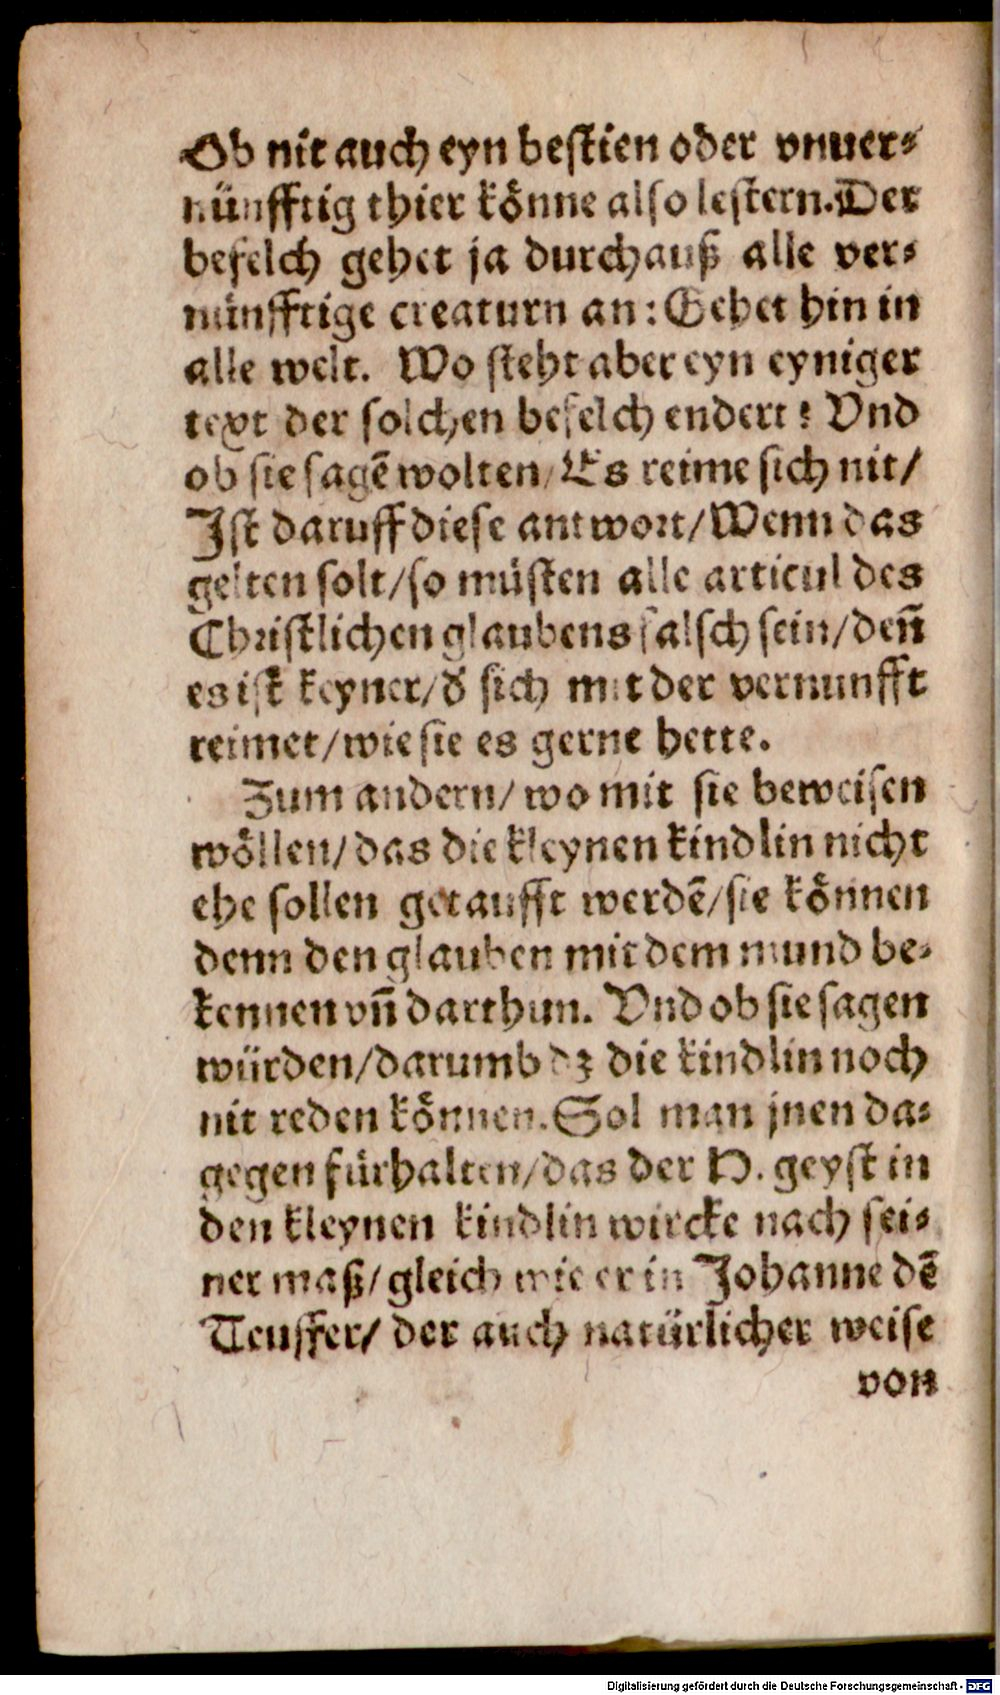 Ob nit auch eyn bestien oder vnuer⸗
nünfftig thier könne also lestern. Der
befelch gehet ja durchauß alle ver⸗
nünfftige creaturn an: Gehet hin in
alle welt. Wo steht aber eyn eyniger
text der solchen befelch endert? Vnd
ob sie sagē wolten/ Es reime sich nit/
Ist daruff diese antwort/ Wenn das
gelten solt/ so müsten alle articul des
Christlichen glaubens falsch sein/ deñ
es ist keyner/ d̕ sich mit der vernunfft
reimet/ wie sie es gerne hette.
Zum andern/ wo mit sie beweisen
wöllen/ das die kleynen kindlin nicht
ehe sollen getaufft werdē/ sie können
denn den glauben mit dem mund be⸗
kennen vñ darthun. Vnd ob sie sagen
würden/ darumb dz die kindlin noch
nit reden können. Sol man jnen da⸗
gegen fürhalten/ das der H. geyst in
den kleynen kindlin wircke nach sei⸗
ner maß/ gleich wie er in Johanne dē
Teuffer/ der auch natürlicher weise
von
Digitalisierung gefördert durch die Deutsche Forschungsgemeinschaft - DFG